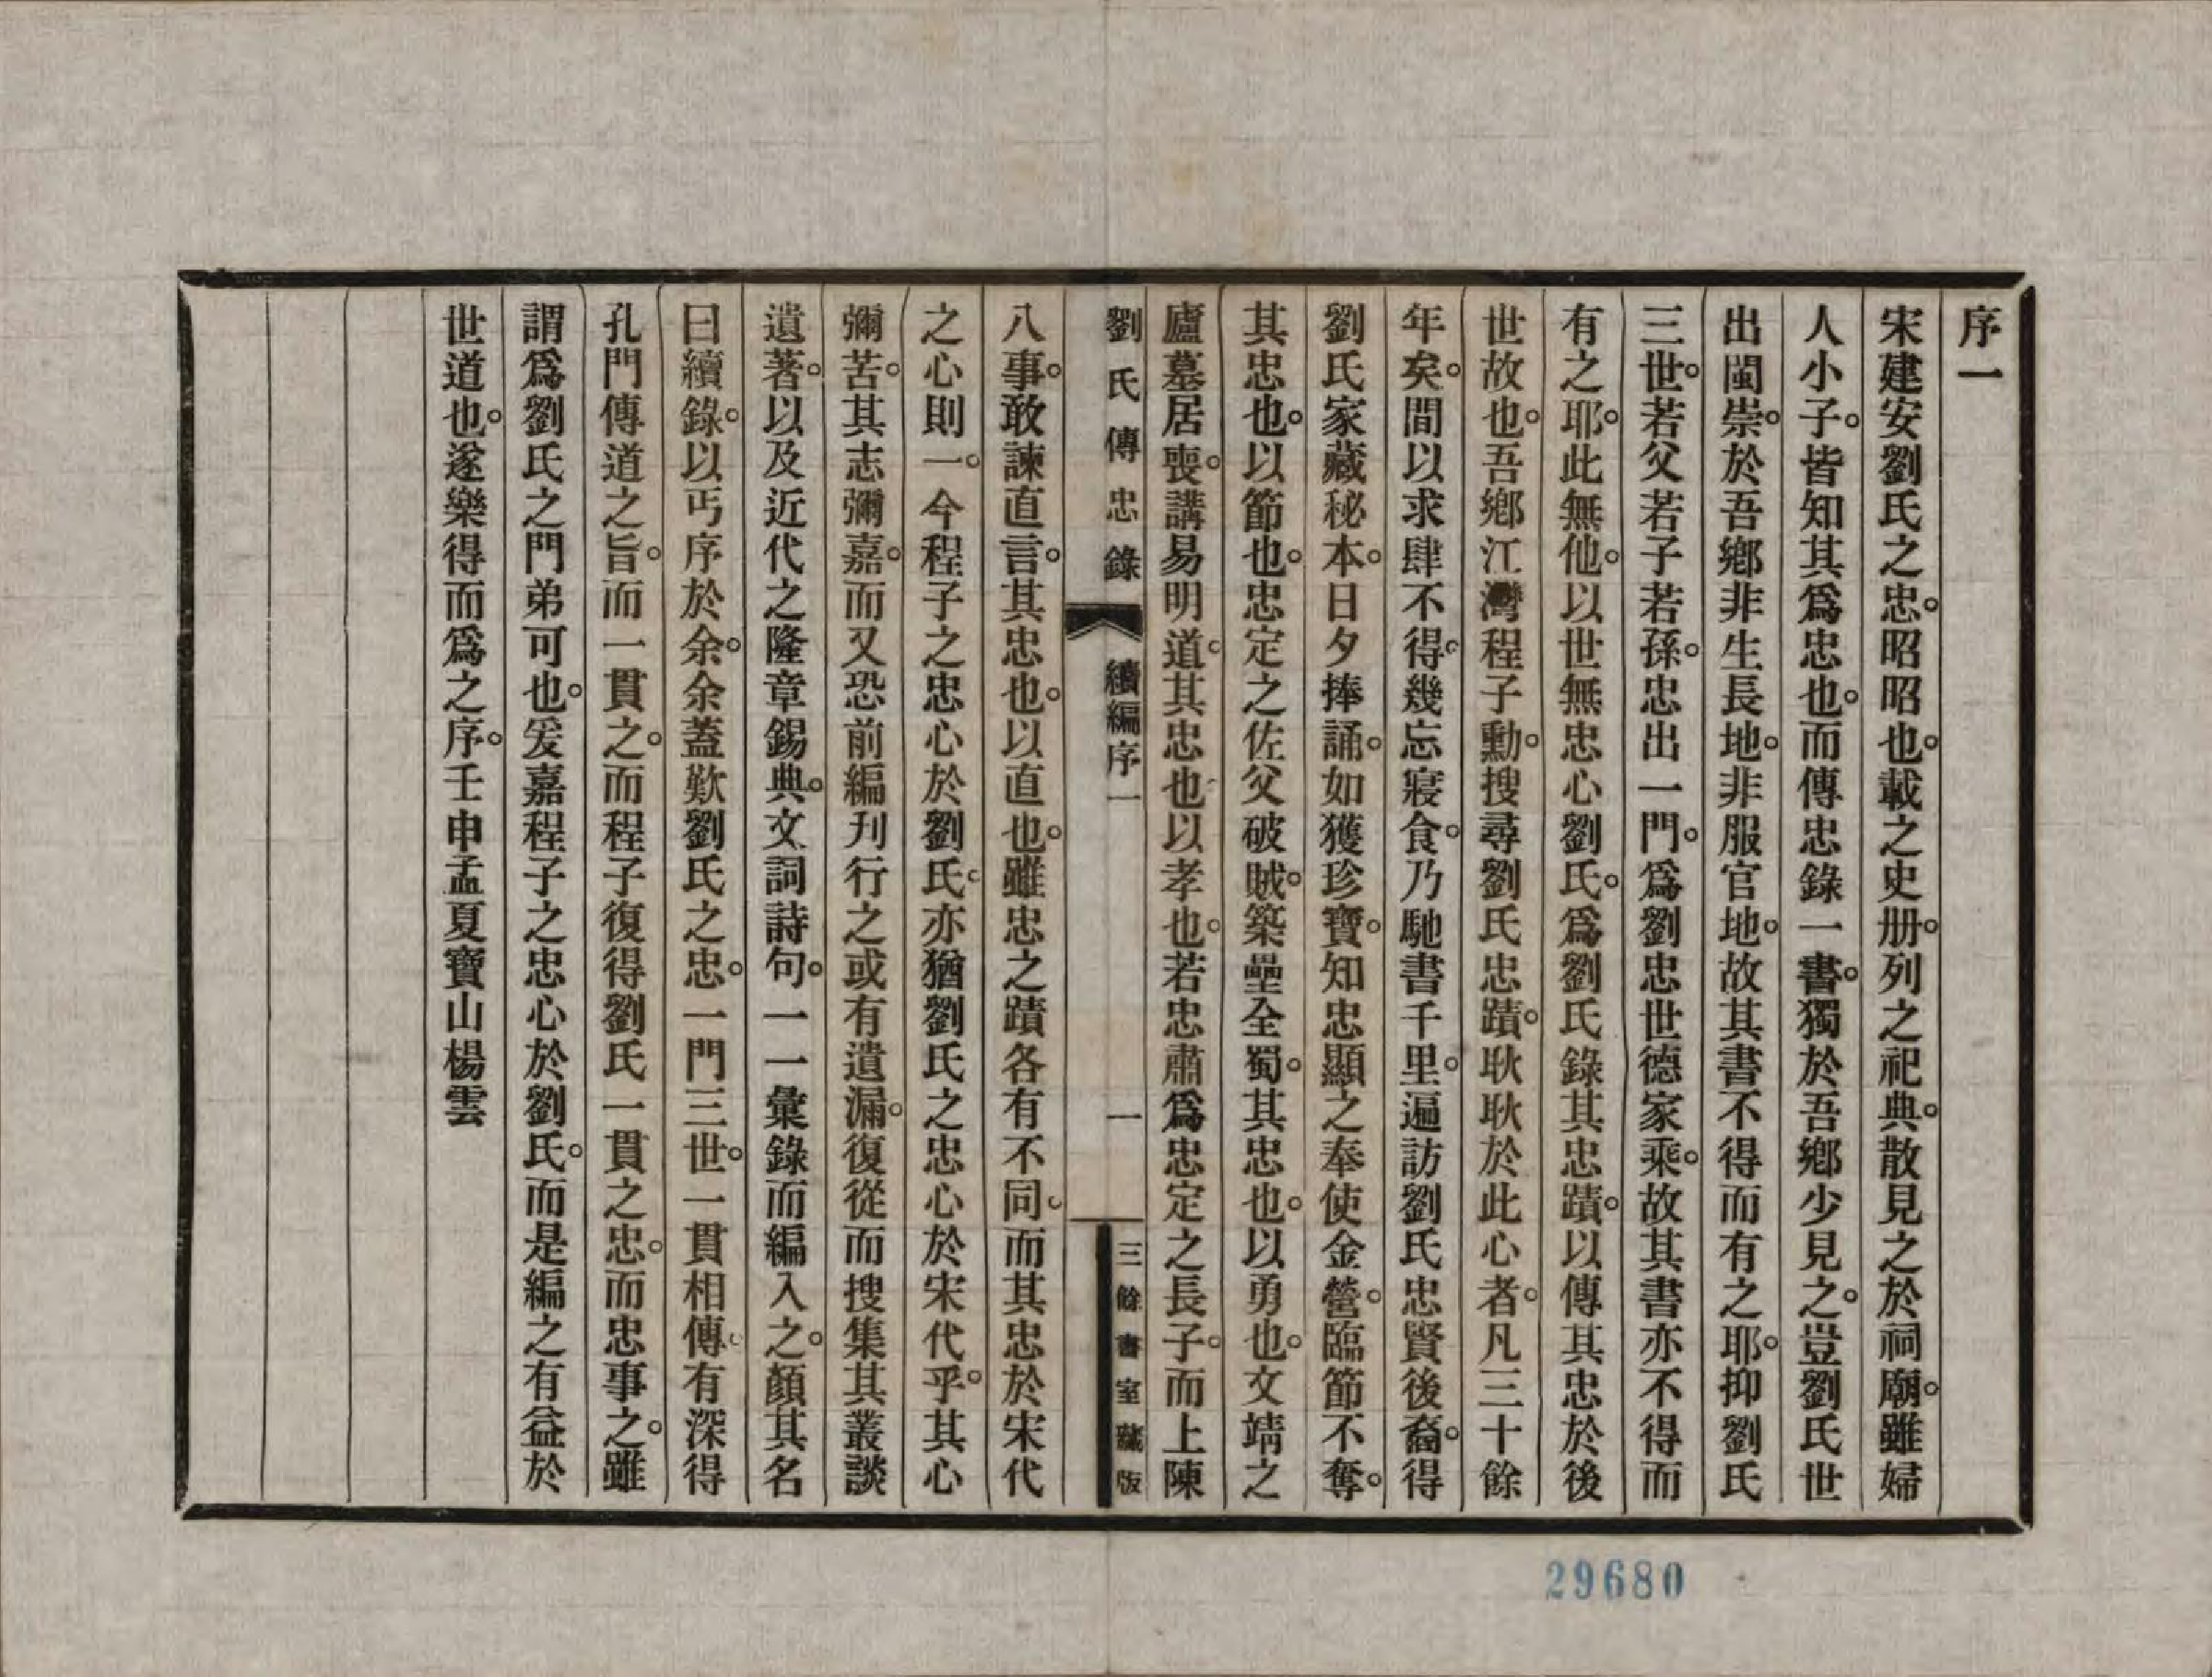 序一
宋建安劉氏之忠。昭昭也。載之史册。列之祀典。散見之於祠廟。雖婦
人小子。皆知其爲忠也。而傳忠錄一書。獨於吾鄉少見之。豈劉氏世
出閩崇。於吾鄉非生長地。非服官地。故其書不得而有之耶。抑劉氏
三世。若父若子若孫。忠出一門。爲劉忠世德家乘。故其書亦不得而
有之耶。此無他。以世無忠心劉氏。爲劉氏錄其忠蹟。以傳其忠於後
世故也。吾鄉江灣程子勳。搜尋劉氏忠蹟。耿耿於此心者。凡三十餘
年矣。間以求肆不得。幾忘寢食。乃馳書千里。遍訪劉氏忠賢後裔。得
劉氏家藏秘本。日夕捧誦。如獲珍寶。知忠顯之奉使金營。臨節不奪。
其忠也。以節也。忠定之佐父破賊。築壘全蜀。其忠也。以勇也。文靖之
廬墓居喪。講易明道。其忠也。以孝也。若忠肅爲忠定之長子。而上陳
劉氏傳忠錄 續編序一 一 三餘書室藏版
八事。敢諫直言。其忠也。以直也。雖忠之蹟各有不同。而其忠於宋代
之心則一。今程子之忠心於劉氏。亦猶劉氏之忠心於宋代乎。其心
彌苦。其志彌嘉。而又恐前編刋行之或有遺漏。復從而搜集其叢談
遺著。以及近代之隆章錫典。文詞詩句。一一彙錄而編入之。顏其名
曰續錄。以丐序於余。余蓋歎劉氏之忠。一門三世。一貫相傳。有深得
孔門傳道之旨。而一貫之。而程子復得劉氏一貫之忠。而忠事之。雖
謂爲劉氏之門弟可也。爰嘉程子之忠心於劉氏。而是編之有益於
世道也。遂樂得而爲之序。壬申孟夏寶山楊雲
29680